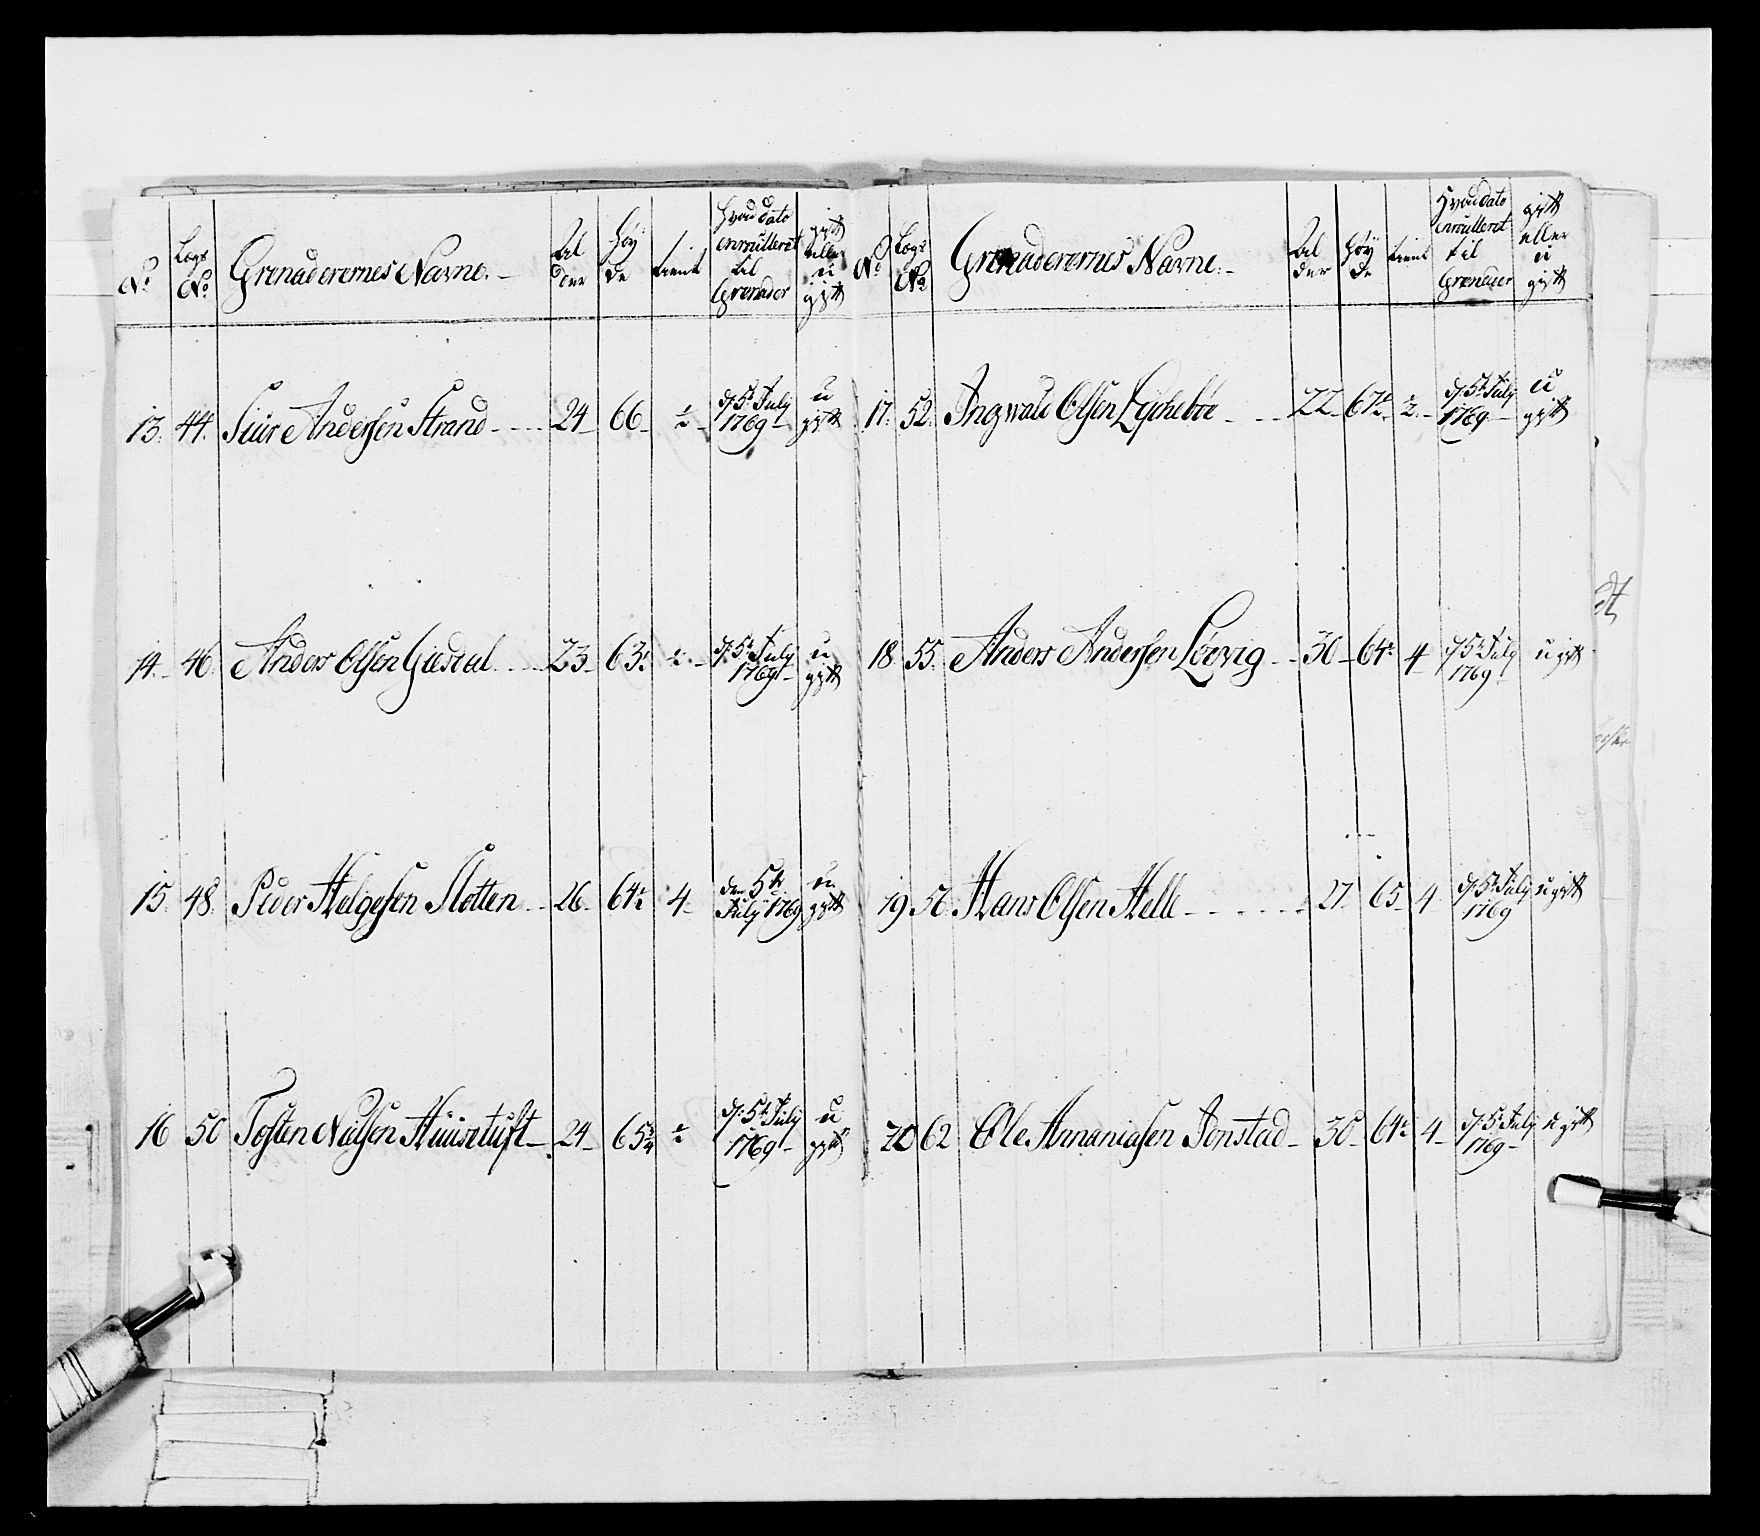 No | Lægs No | Grenaderernes Navne. | Al der | Høy de | tient | Hvad dato enroulleret til Grenader | gift eller u gift
13. | 44. | Siur Andersen Strand | 24 | 66 | ½ | d: 5t July 1769 | u gift
14. | 46. | Anders Olsen Giesdal | 23 | 63½ | ½ | d: 5t July 1769 | u gift
15. | 48. | Peder Helgesen Sletten | 26 | 64½ | 4 | den 5te July 1769 | u gift
16 | 50 | Tosten Nielsen Huusetuft | 24 | 65¾ | ½ | d: 5t July 1769 | u gift
No | Lægs No | Grenaderernes Navne. | Al der | Høy de | tient | Hvad dato enroulleret til Grenader | gift eller u gift
17. | 52. | Ingwald Olsen Lycheboe | 22 | 67½ | ½ | d: 5t July 1769 | u gift
18 | 55. | Anders Andersen Løevig | 30 | 64½ | 4 | d: 5t July 1769 | u gift
19 | 56 | Hans Olsen Helle | 27 | 65 | 4 | d: 5t July 1769 | u gift
20 | 62 | Ole Annaniasen Jonstad | 30 | 64½ | 4 | d: 5t July 1769 | u gift